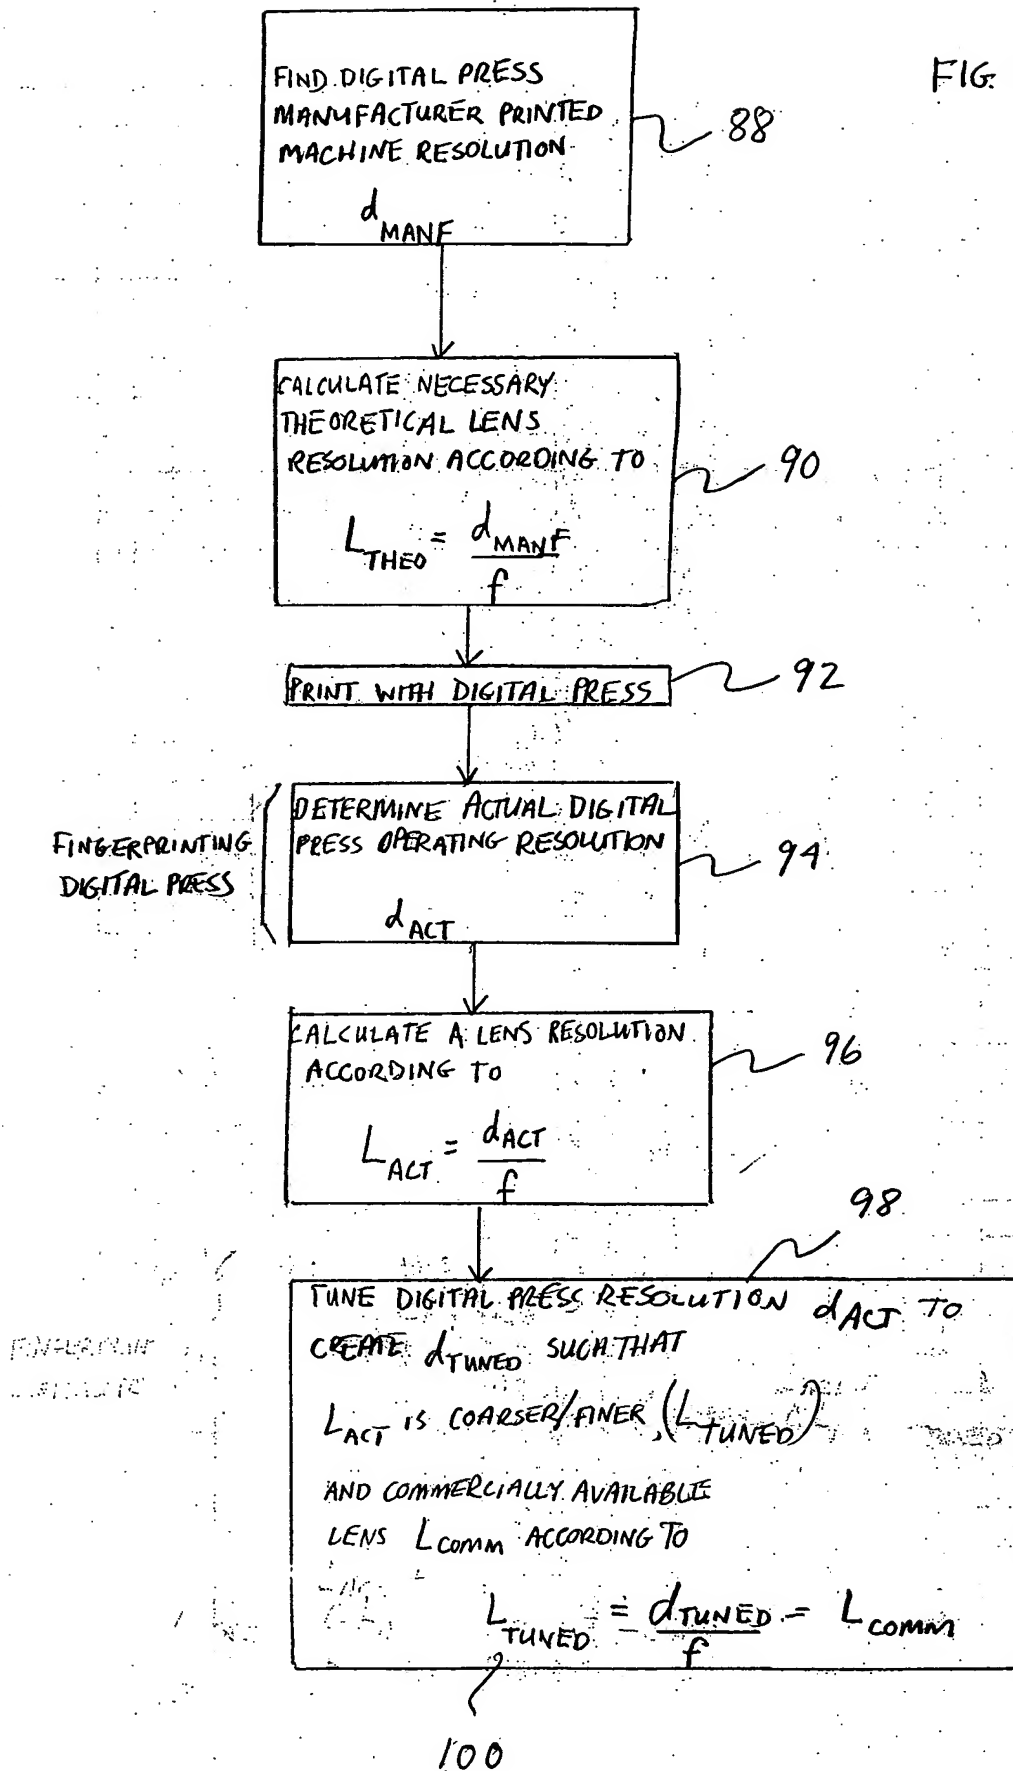 FIG.
FIND DIGITAL PRESS
MANUFACTURER PRINTED
MACHINE RESOLUTION
d MANF
88
CALCULATE NECESSARY
THEORETICAL LENS
RESOLUTION ACCORDING TO
L THEO = d MANF / f
90
PRINT WITH DIGITAL PRESS
92
FINGERPRINTING
DIGITAL PRESS
DETERMINE ACTUAL DIGITAL
PRESS OPERATING RESOLUTION
d ACT
94
CALCULATE A LENS RESOLUTION
ACCORDING TO
L ACT = d ACT / f
96
98
TUNE DIGITAL PRESS RESOLUTION d ACT TO
CREATE d TUNED SUCH THAT
L ACT IS COARSER/FINER, (L TUNED)
AND COMMERCIALLY AVAILABLE
LENS L COMM ACCORDING TO
L TUNED = d TUNED / f = L COMM
100